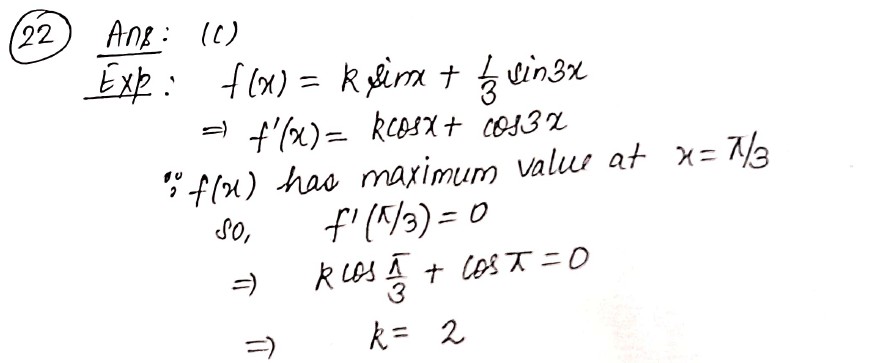 (22) Ans: (c)
Exp: f(x) = k sinx + 1/3 sin3x
⇒ f'(x) = kcosx + cos3x
∵ f(x) has maximum value at x = π/3
so, f'(π/3) = 0
⇒ k cos π/3 + cos π = 0
⇒ k = 2